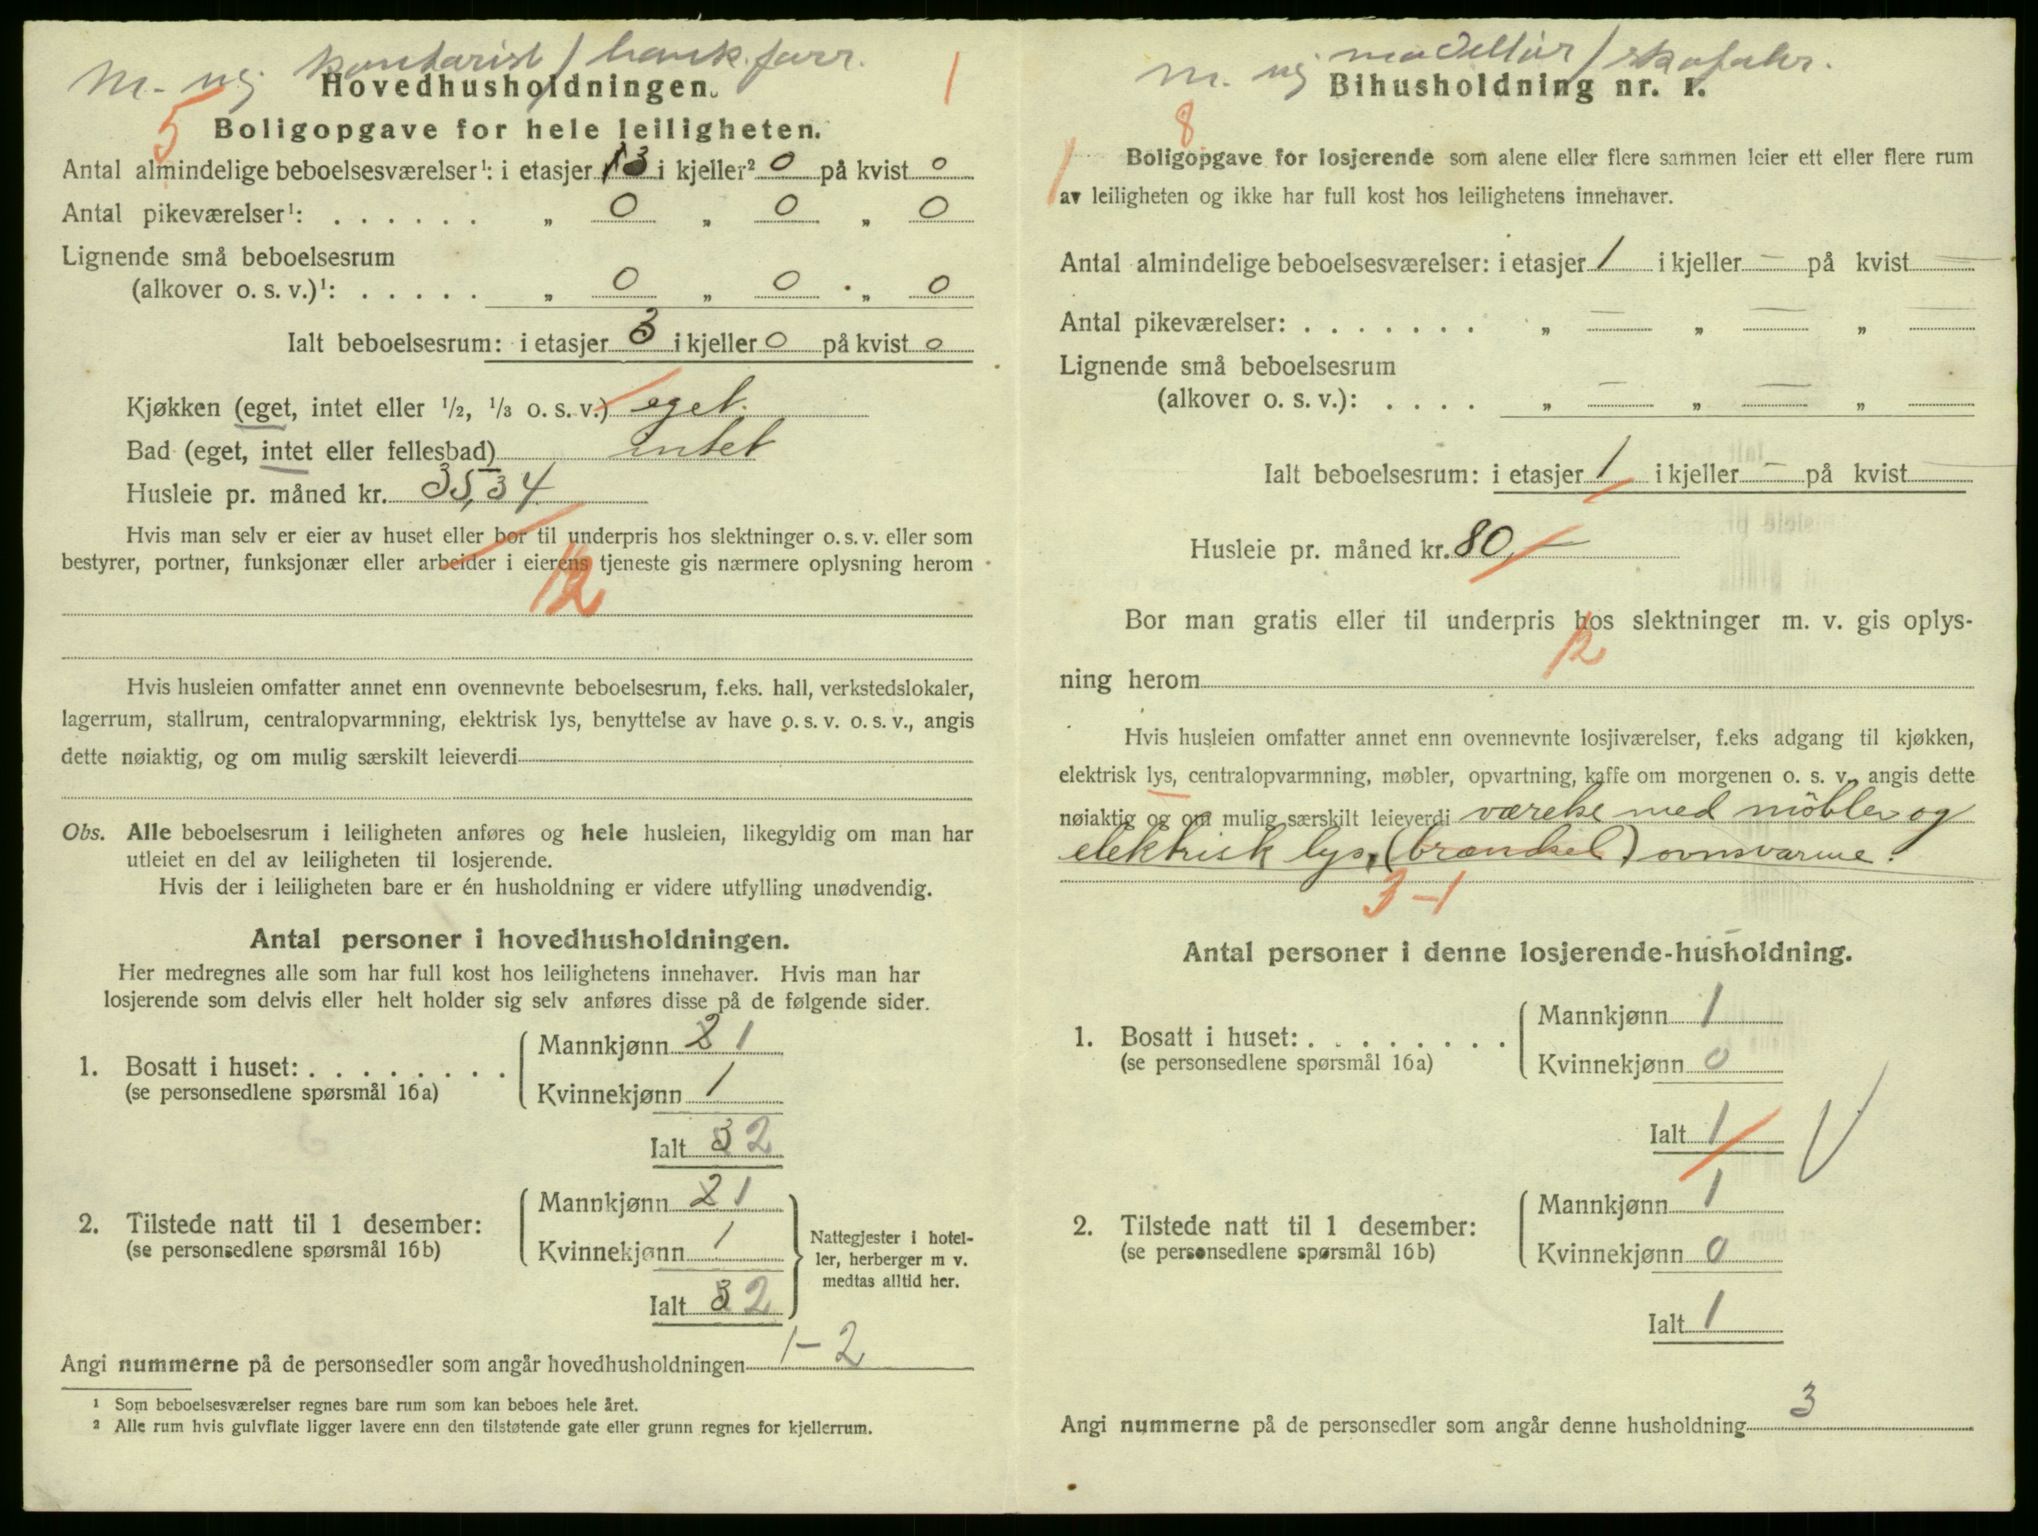 M. ug. kontorist / bank.forr.
1
Hovedhusholdningen.
5
Boligopgave for hele leiligheten.
Antal almindelige beboelsesværelser¹: i etasjer 3 i kjeller² 0 på kvist 0
Antal pikeværelser¹: . . . . . . „ 0 „ 0 „ 0
Lignende små beboelsesrum
(alkover o. s. v.)¹: . . . . . „ 0 „ 0 „ 0
Ialt beboelsesrum: i etasjer 3 i kjeller 0 på kvist 0
Kjøkken (eget, intet eller 1/2, 1/3 o. s. v.) eget.
Bad (eget, intet eller fellesbad) intet
Husleie pr. måned kr. 35,34
Hvis man selv er eier av huset eller bor til underpris hos slektninger o. s. v. eller som
bestyrer, portner, funksjonær eller arbeider i eierens tjeneste gis nærmere oplysning herom
12
Hvis husleien omfatter annet enn ovennevnte beboelsesrum, f.eks. hall, verkstedslokaler,
lagerrum, stallrum, centralopvarmning, elektrisk lys, benyttelse av have o. s. v. o. s. v., angis
dette nøiaktig, og om mulig særskilt leieverdi
Obs. Alle beboelsesrum i leiligheten anføres og hele husleien, likegyldig om man har
utleiet en del av leiligheten til losjerende.
Hvis der i leiligheten bare er én husholdning er videre utfylling unødvendig.
Antal personer i hovedhusholdningen.
Her medregnes alle som har full kost hos leilighetens innehaver. Hvis man har
losjerende som delvis eller helt holder sig selv anføres disse på de følgende sider.
1. Bosatt i huset: . . . . . . . . Mannkjønn 2 1
(se personsedlene spørsmål 16a) Kvinnekjønn 1
Ialt 3 2
2. Tilstede natt til 1 desember: Mannkjønn 2 1
(se personsedlene spørsmål 16b) Kvinnekjønn 1
Ialt 3 2
Nattegjester i hotel-
ler, herberger m v.
medtas alltid her.
Angi nummerne på de personsedler som angår hovedhusholdningen 1-2
¹ Som beboelsesværelser regnes bare rum som kan beboes hele året.
² Alle rum hvis gulvflate ligger lavere enn den tilstøtende gate eller grunn regnes for kjellerrum.
M. ug modellør / skofabr.
Bihusholdning nr. 1.
8
1
Boligopgave for losjerende som alene eller flere sammen leier ett eller flere rum
av leiligheten og ikke har full kost hos leilighetens innehaver.
Antal almindelige beboelsesværelser: i etasjer 1 i kjeller — på kvist —
Antal pikeværelser: . . . . . . . „ — „ — „ —
Lignende små beboelsesrum
(alkover o. s. v.): . . . . „ — „ — „ —
Ialt beboelsesrum: i etasjer 1 i kjeller — på kvist —
Husleie pr. måned kr. 80,—
Bor man gratis eller til underpris hos slektninger m. v. gis oplys-
12
ning herom
Hvis husleien omfatter annet enn ovennevnte losjiværelser, f.eks adgang til kjøkken,
elektrisk lys, centralopvarmning, møbler, opvartning, kaffe om morgenen o. s. v. angis dette
nøiaktig og om mulig særskilt leieverdi værelse med möbler og
elektrisk lys, (brændsel) ovnsvarme.
3-1
Antal personer i denne losjerende-husholdning.
1. Bosatt i huset: . . . . . . . . Mannkjønn 1
(se personsedlene spørsmål 16a) Kvinnekjønn 0
Ialt 1
2. Tilstede natt til 1 desember: Mannkjønn 1
(se personsedlene spørsmål 16b) Kvinnekjønn 0
Ialt 1
Angi nummerne på de personsedler som angår denne husholdning 3